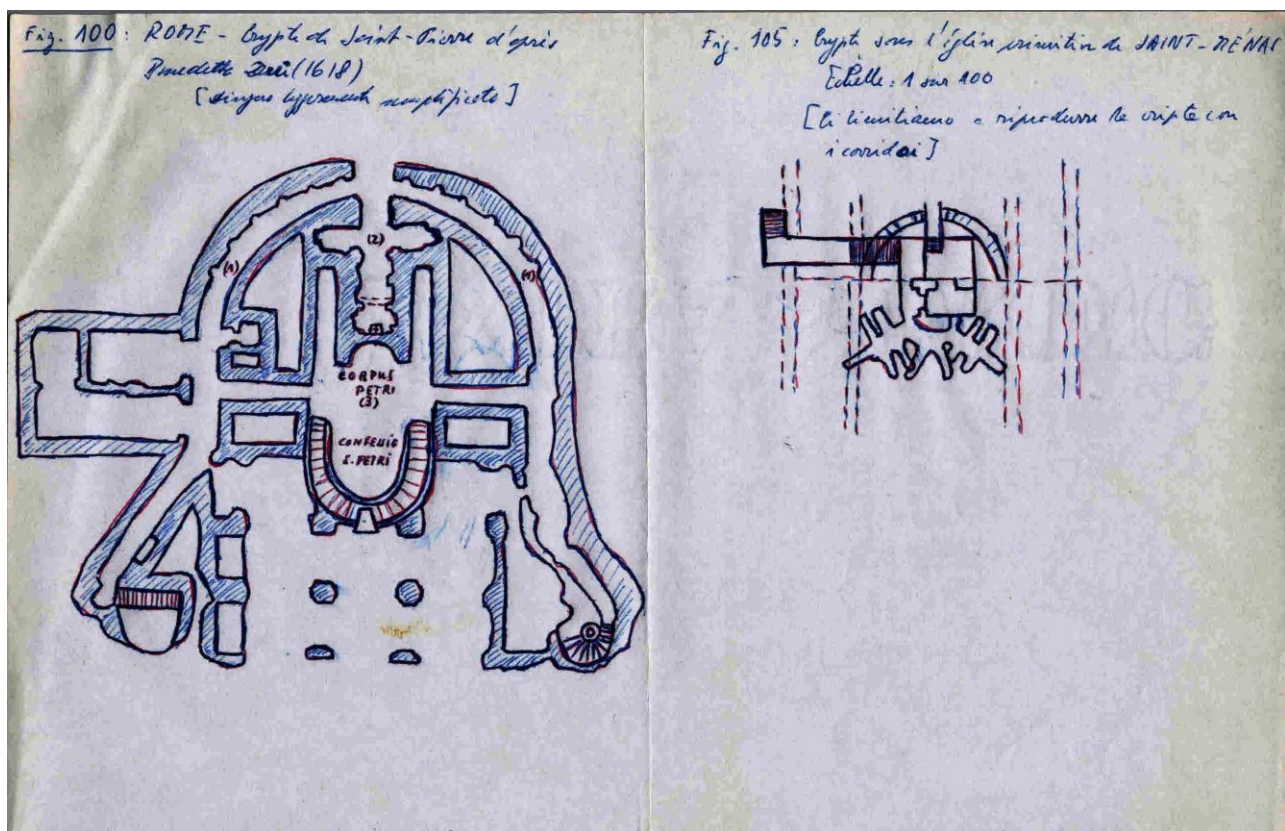 Fig. 100 : ROME - Crypte de Saint-Pierre d'après
Benedetto Drei (1618)
[disegno leggermente semplificato]
(2)
(1)
(1)
CORPUS
PETRI
(3)
CONFESSIO
S. PETRI
Fig. 105 : Crypte sous l'église primitive de SAINT-MÉNAS
Echelle : 1 sur 100
[Ci limitiamo a riprodurre le cripte con
i corridoi]